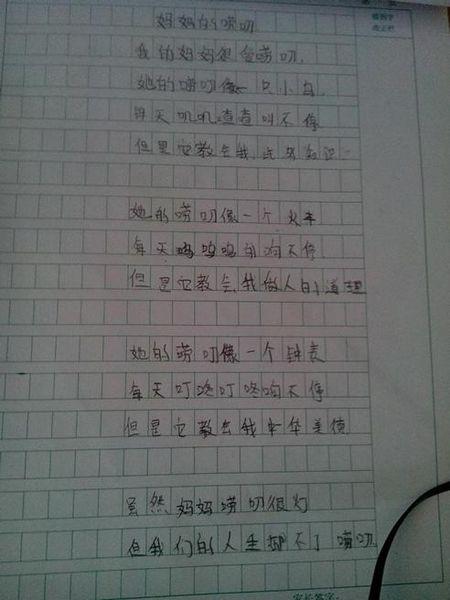 妈妈的唠叨
我的妈妈很会唠叨,
她的唠叨像一只小鸟
每天叽叽喳喳叫不停
但是它教会我 知识
她的唠叨像一个火车
每天呜呜呜的响不停
但是它教会我做人的道理
她的唠叨像一个钟表
每天叮咚叮咚响不停
但是它教会我中华美德
虽然妈妈唠叨很烦
但我们的人生却不了唠叨
家长签字: